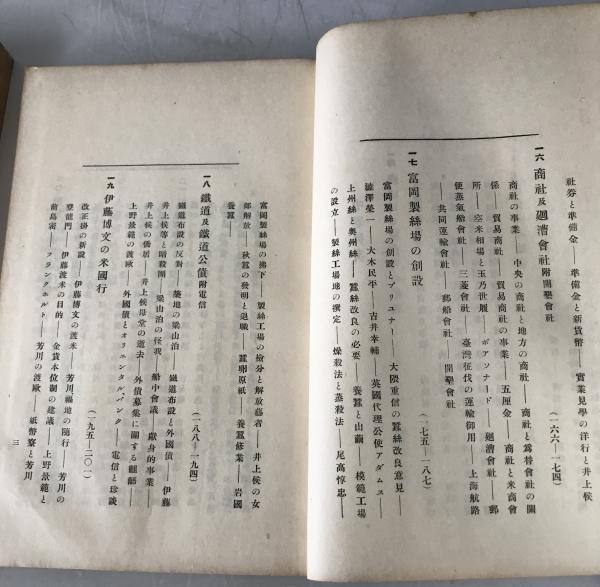 社券と準備金――準備金と新貨幣――實業見學の洋行と井上侯
一六 商社及廻漕會社 附開墾會社 (一六六―一七四)
商社の事業――中央の商社と地方の商社――商社と爲替會社の關
係――貿易商社――貿易商社の事業――五厘金――商社と米商會
所――空米相場と玉乃世履――ボアソナード――廻漕會社――郵
便蒸氣船會社――三菱會社――臺灣征伐の運輸御用――上海航路
――共同運輸會社――郵船會社――開墾會社
一七 富岡製絲場の創設 (一七五―一八七)
富岡製絲場の創設とブリユナー――大隈重信の蠶絲改良意見――
澁澤榮一――大木民平――吉井幸輔――英國代理公使アダムス――
上州絲と奧州絲――蠶絲改良の必要――養蠶と山繭――模範工場
の設立――製絲工場地の撰定――燥殺法と蒸殺法――尾高惇忠――
富岡製絲場の拂下――製絲工場の檢分と解放藝者――井上侯の女
郎解放――秋蠶の發明と退職――蠶卵原紙――養蠶修業――岩國
養蠶――
一八 鐵道及鐵道公債 附電信 (一八八―一九四)
鐵道布設の反對――築地の梁山泊――鐵道布設と外國債――伊藤
井上侯等と暗殺團――梁山泊の怪我――船中會議――獻身的事業――
井上侯の僑居――井上侯母堂の逝去――外債募集に關する
上野景範の渡歐――外國債とオリエンタル、バンク――電信と珍談
一九 伊藤博文の米國行 (一九五―二〇一)
改正掛の新設――伊藤博文の渡米――芳川福地の隨行――芳川の
登龍門――伊藤渡米の目的――金貨本位制の建議――上野景範と
前島密――フランクホルト――芳川の渡歐――紙幣寮と芳川
三